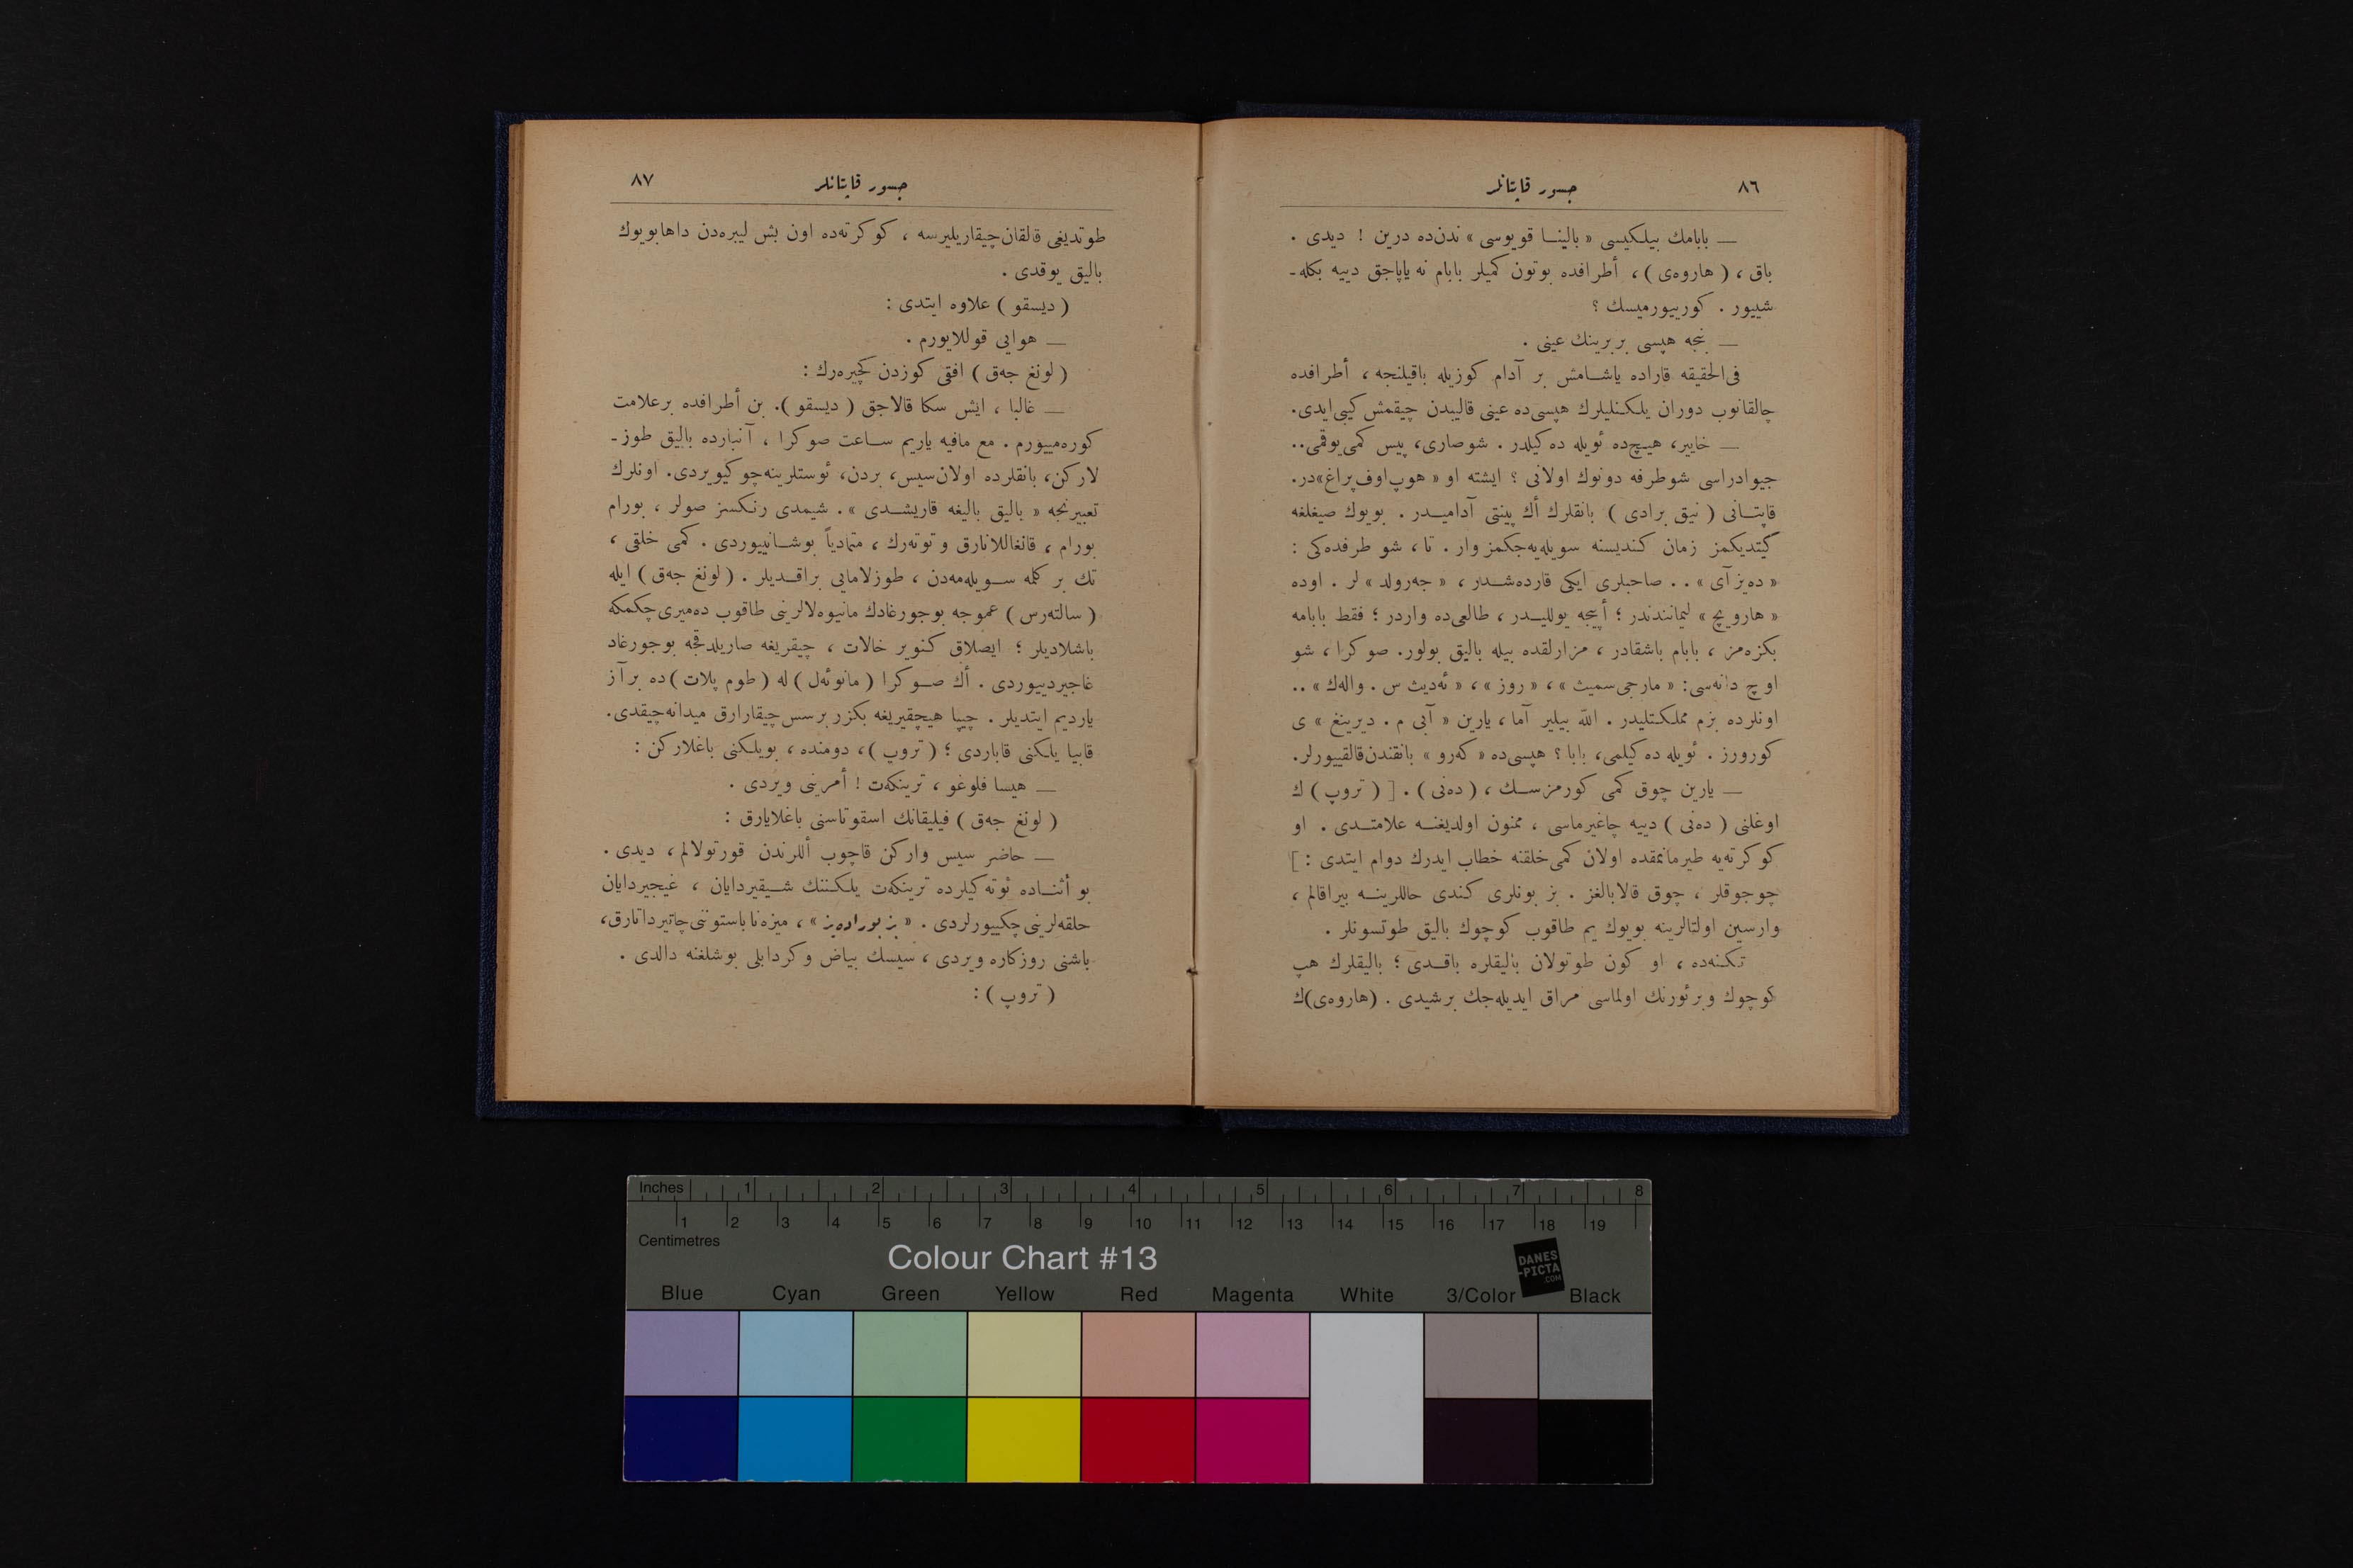 ٨٦
جسور قاپتانلر
— بابامك بيلكيسى « بالينـا قويوسى » ندن‌ده درين ! ديدى .
باق ، ( هاروه‌ى ) ، أطرافده بوتون كميلر بابام نه ياپاجق دييه بكله‌ـ
شييور . كورييورميسك ؟
— بنجه هپسى بربرينك عينى .
فى‌الحقيقه قاراده ياشـامش بر آدام كوزيله باقيلنجه ، أطرافده
چالقانوب دوران يلكـنليلرك هپسى‌ده عينى قاليبدن چيقمش كيبى‌ايدى.
— خايير، هيـچ‌ده ئويله ده‌كيلدر . شوصارى، پيس كمى‌يوقمى..
جيوادراسى شوطرفه دونوك اولانى ؟ ايشته او « هوپ‌اوف‌پراغ»در.
قاپتـانى ( نيق برادى ) بانقلرك أك پينتى آداميـدر . بويوك صيغلغه
گيتديكمز زمان كنديسنه سويله‌يه‌جكمز وار . تا ، شو طرفده‌كى :
« ده‌يز آى » . . صاحبلرى ايكى قارده‌شـدر ، « جه‌رولد » لر . اوده
« هارويچ » ليمانندندر ؛ أپيجه يولليـدر ، طالعى‌ده واردر ؛ فقط بابامه
بكزه‌مز ، بابام باشقادر ، مزارلقده بيله باليق بولور. صوكرا ، شو
اوچ دانه‌سى: « مارجى‌سميث » ، « روز » ، « ئه‌ديث س . واله‌ك » ..
اونلرده بزم مملكتليدر . الله بيلير آما ، يارين « آبى م . ديرينغ » ى
كورورز . ئويله ده‌كيلمى، بابا ؟ هپسى‌ده « كه‌رو » بانقندن‌قالقييورلر.
— يارين چوق كمى كورمزسـك ، ( ده‌نى ) . [ ( تروپ ) ك
اوغلنى ( ده‌نى ) دييه چاغيرماسى ، ممنون اولديغنـه علامتـدى . او
كوكرته‌يه طيرمانمقده اولان كمى‌خلقنه خطاب ايدرك دوام ايتدى : ]
چوجوقلر ، چوق قالابالغز . بز بونلرى كندى حاللرينـه بيراقالم ،
وارسين اولتالرينه بويوك يم طاقوب كوچوك باليق طوتسونلر .
تكـنه‌ده ، او كون طوتولان باليقلره باقـدى ؛ باليقلرك هپ
كوچوك وبرئورنك اولماسى مراق ايديله‌جك برشيدى . (هاروه‌ى)ك
جسور قاپتانلر
٨٧
طوتديغى قالقان‌چيقاريليرسه ، كوكرته‌ده اون بش ليبره‌دن داهابويوك
باليق يوقدى .
( ديسقو ) علاوه ايتدى :
— هوايى قوللايورم .
( لونغ جه‌ق ) افقى كوزدن كچيره‌رك :
— غالبا ، ايش سكا قالاجق ( ديسقو ). بن أطرافده برعلامت
كوره‌مييورم . مع مافيه ياريم سـاعت صوكرا ، آنبارده باليق طوزـ
لاركن، بانقلرده اولان‌سيس، بردن، ئوستلرينه‌چوكيويردى. اونلرك
تعبيرنجه « باليق باليغه قاريشـدى ». شيمدى رنكسز صولر ، بورام
بورام ، قانغاللانارق وتوته‌رك ، متمادياً بوشـانييوردى . كمى خلقى ،
تك بر كله سـويله‌مه‌دن ، طوزلامايى براقـديلر . ( لونغ جه‌ق ) ايله
( سالته‌رس ) عموجه بوجورغادك مانيوه‌لالرينى طاقوب ده‌ميرى‌چكمكه
باشلاديلر ؛ ايصلاق كنوير خالات ، چيقريغه صاريلدقجه بوجورغاد
غاجيردييوردى . أك صـوكرا ( مانوئه‌ل ) له ( طوم پلات ) ده برآز
يارديم ايتديلر . چيپا هيچقيريغه بكزر برسس چيقارارق ميدانه‌چيقدى.
قابيا يلكنى قاباردى ؛ ( تروپ ) ، دومنده ، بويلـكنى باغلاركن :
— هيسا فلوغو ، ترينكه‌ت ! أمرينى ويردى .
( لونغ جه‌ق ) فيليقانك اسقوتاسنى باغلايارق :
— حاضر سيس واركن قاچوب أللرندن قورتولالم ، ديدى .
بو أثنـاده ئوته‌كيلرده ترينكه‌ت يلكـننك شـيقيردايان ، غيجيردايان
حلقه‌لرينى‌چكييورلردى . « بزبوراده‌يز » ، ميزه‌ناباستوننى‌چاتيرداتارق،
باشنى روزكاره ويردى ، سيسك بياض وكردابلى بوشلغنه دالدى .
( تروپ ) :
Inches 1 2 3 4 5 6 7 8
1 2 3 4 5 6 7 8 9 10 11 12 13 14 15 16 17 18 19
Centimetres
Colour Chart #13
DANES
-PICTA
.COM
Blue Cyan Green Yellow Red Magenta White 3/Color Black